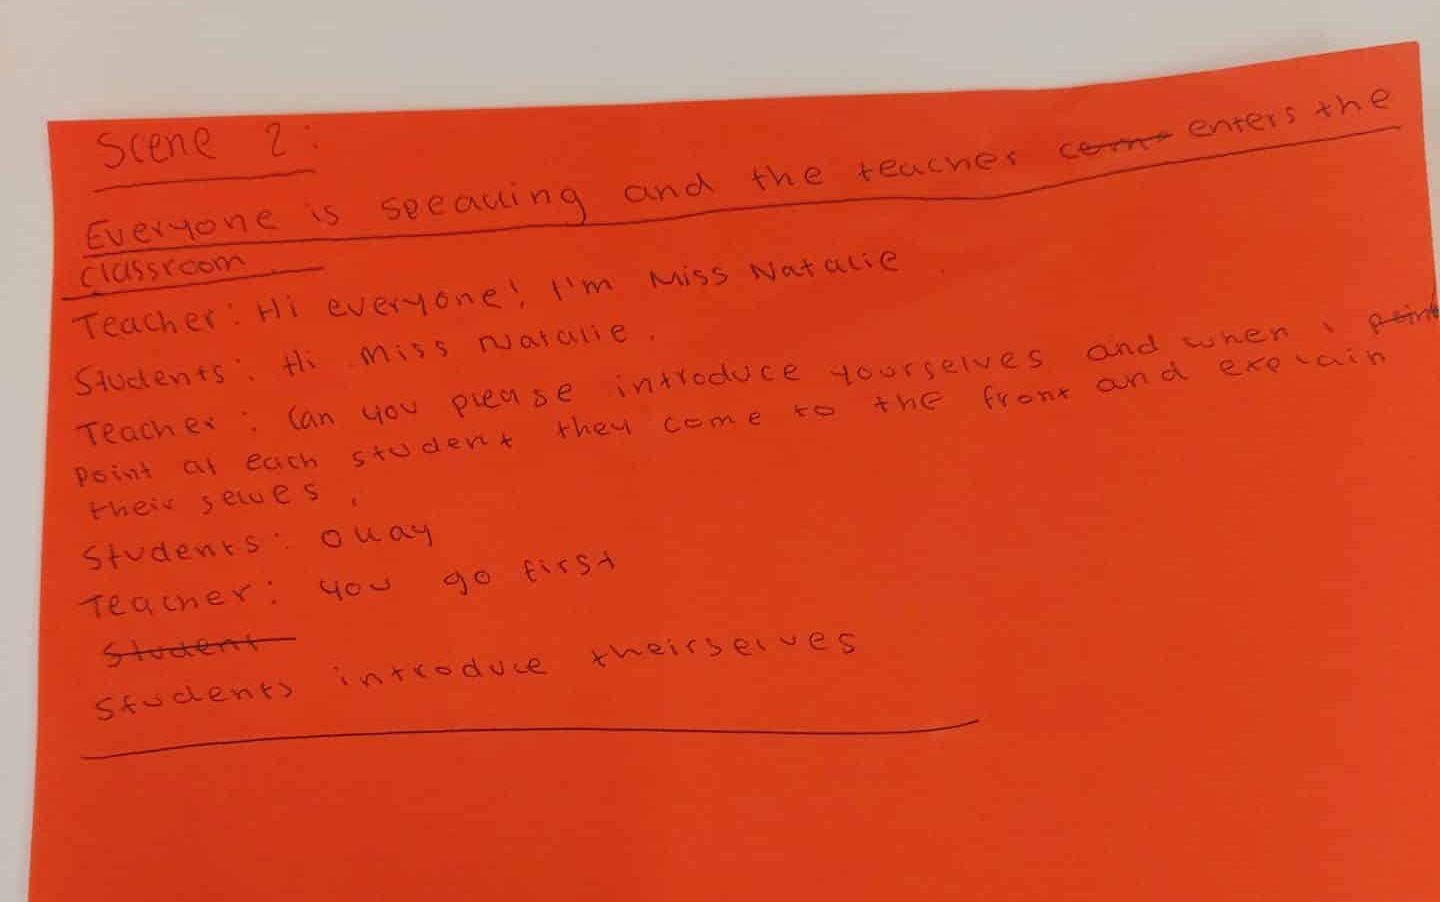 Scene 2:
Everyone is speaking and the teacher com enters the
classroom
Teacher: Hi everyone! I'm Miss Natalie.
Students: Hi Miss Natalie.
Teacher: Can you please introduce yourselves and when i point
point at each student they come to the front and explain
their selves.
Students: okay
Teacher: you go first
Student
Students introduce theirselves